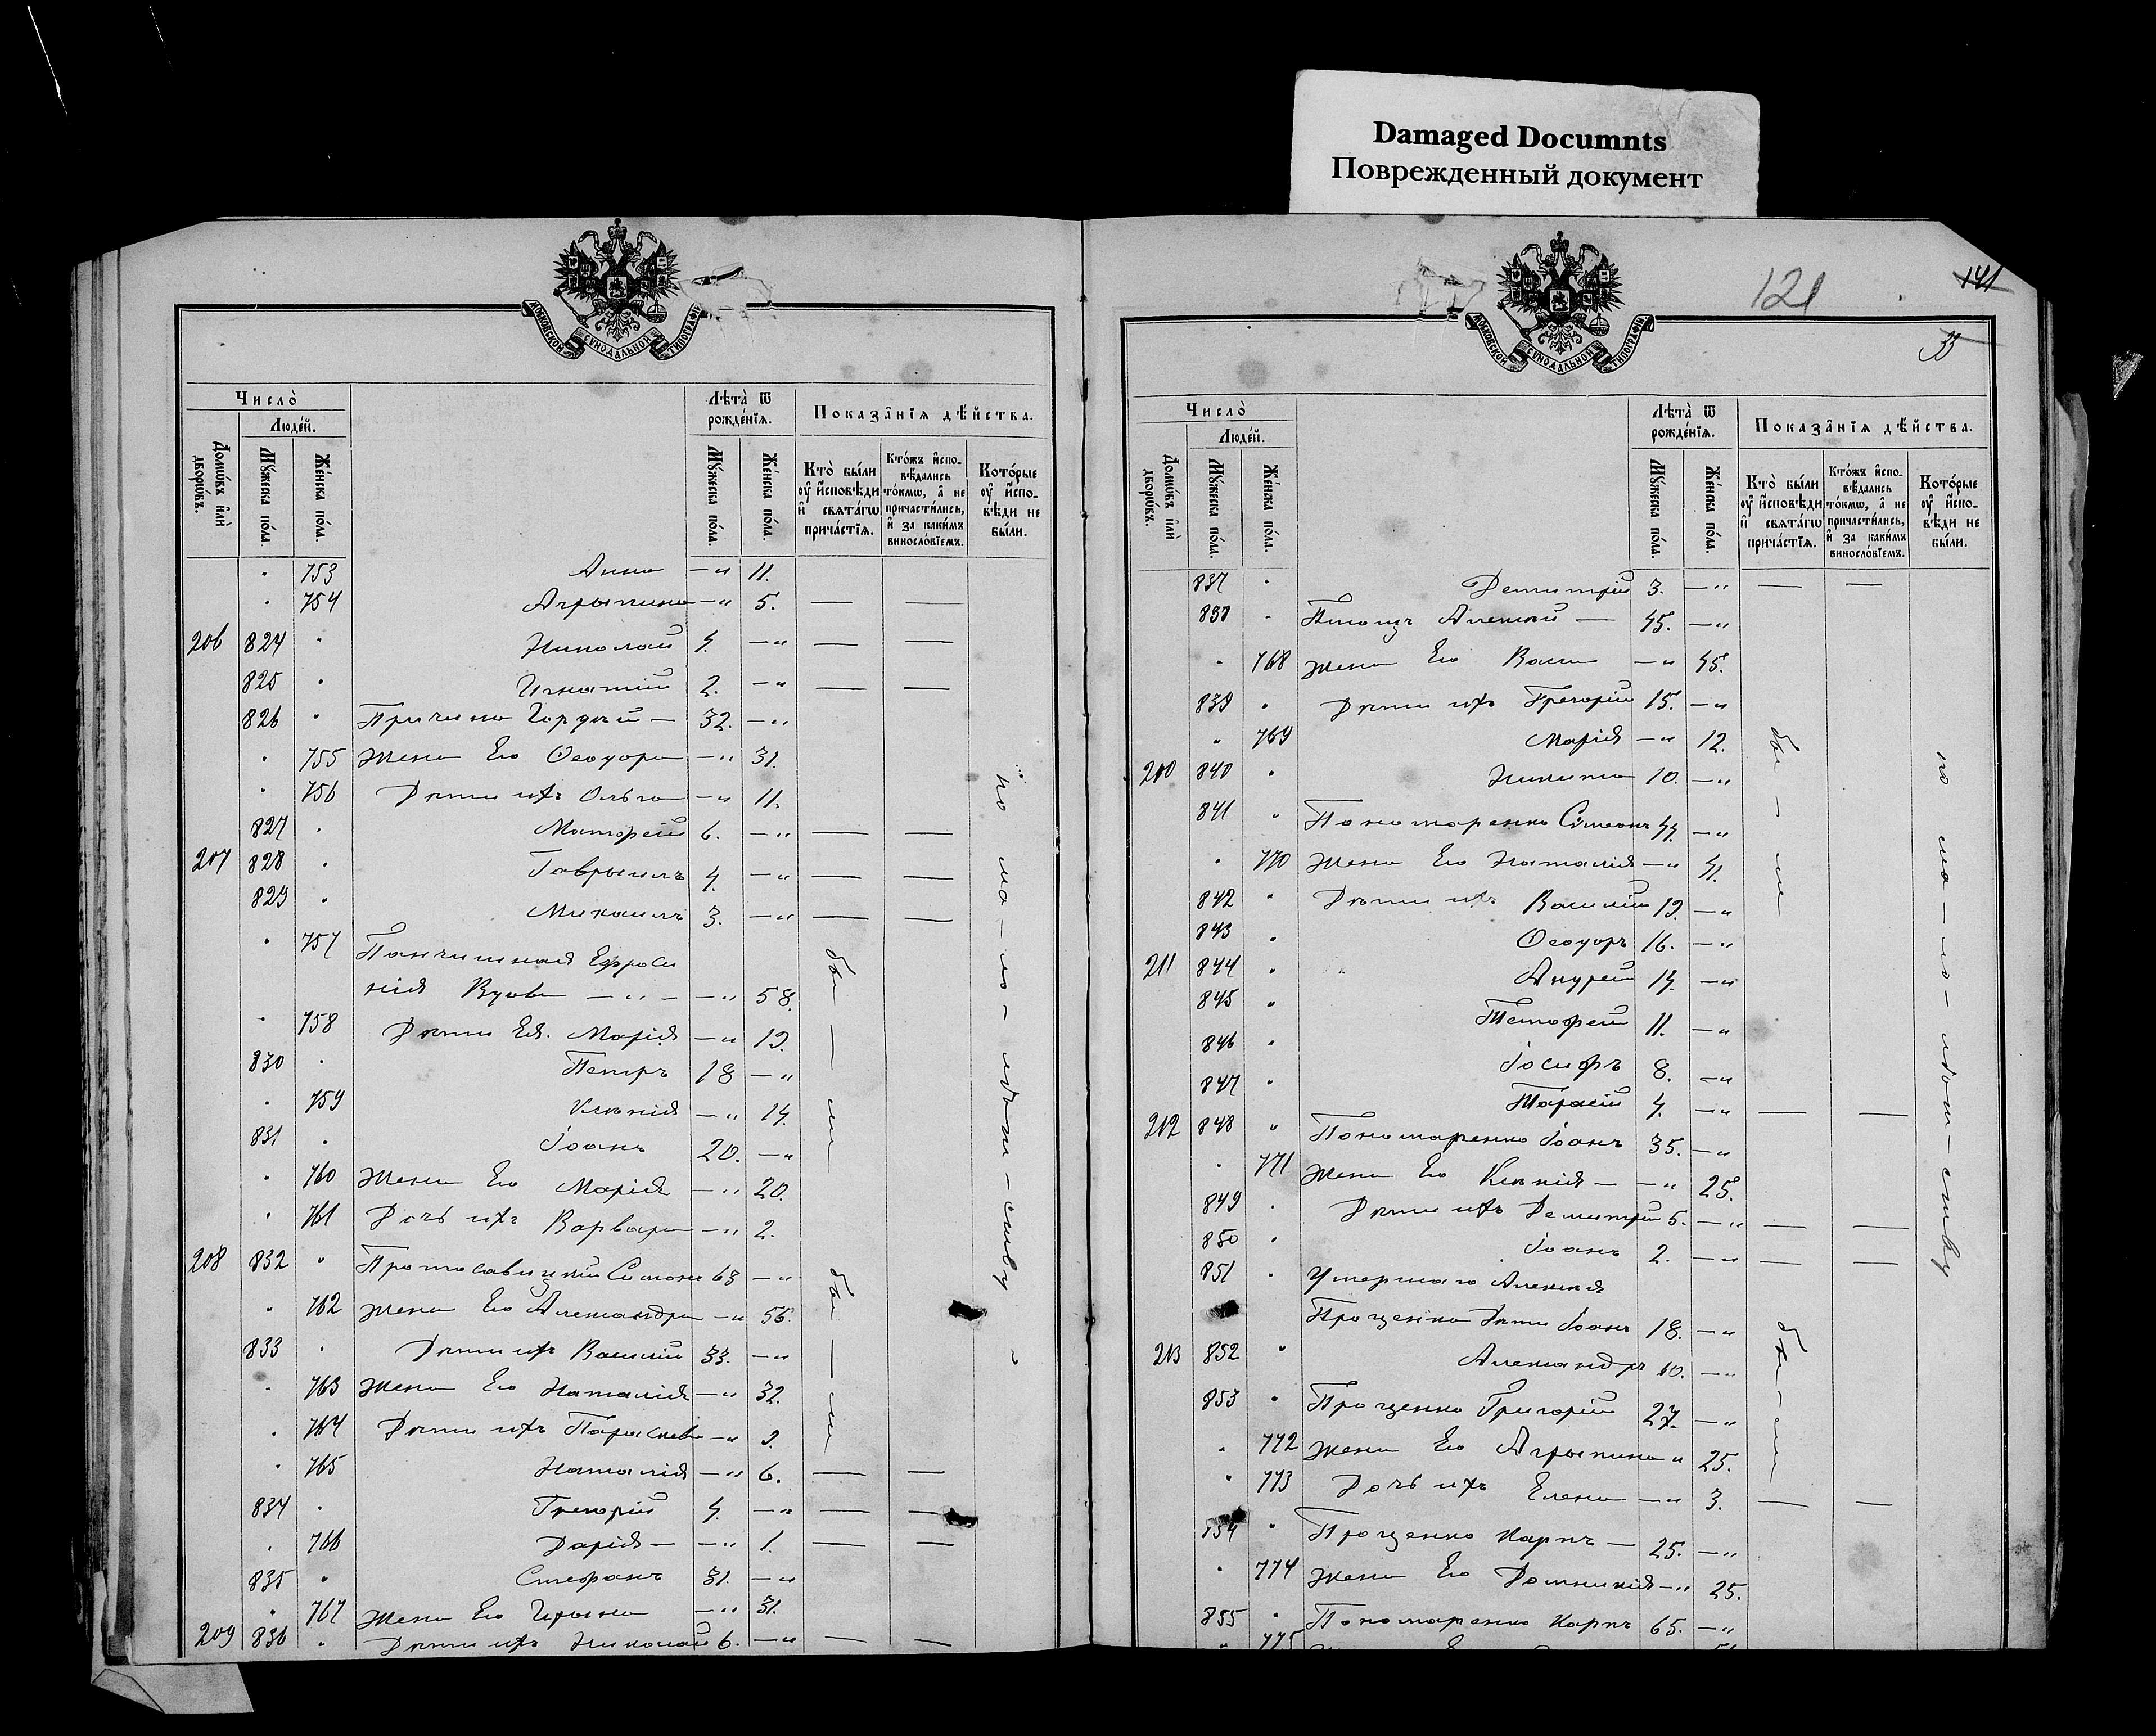 Damaged Documnts
Поврежденный документ
МОСКОВСКОЙ СѴНОДАЛЬНОЙ ТИПОГРАФІИ
Число̀
Люде́й.
Домѡ́въ и҆лѝ дворѡ́въ.
Мꙋ́жеска по́ла.
Же́нска по́ла.
Лѣ́та ѿ рожде́нїѧ.
Мꙋ́жеска по́ла.
Же́нска по́ла.
Показа̑нїѧ дѣ́йства.
Кто̀ бы́ли ᲂу҆ и҆сповѣ́ди и҆ свѧта́гѡ прича́стїѧ.
Кто́жъ и҆сповѣ́дались то́кмѡ, а҆ не причасти́лись, и҆ за каки́мъ виносло́вїемъ.
Кото́рые ᲂу҆ и҆сповѣ́ди не бы́ли.
753 Анна — " 11.
754 Агрыпина — " 5. — —
206 824 " Николай 4. — " — —
825 " Игнатій 2. — " — —
826 " Гордѣй — 32. — "
755 Жена Его Ѳеодора — " 31.
756 Дѣти ихъ Ольга — " 11.
827 " Матфей 6. — " — —
207 828 " Гаврыилъ 4. — " — —
829 " Михаилъ 3. — " — —
757 Ефроси
нія Вдова — " — — " 58.
758 Дѣти Ея. Марія — " 19.
830 " Петръ 18 — "
759 Ксенія — " 14.
831 " Іоанъ 20. — "
760 Жена Его Марія — " 20.
761 Дочь ихъ Варвара — " 2.
208 832 " 63 — "
762 Жена Его Александра — " 56.
833 " Дѣти ихъ Василій 33. — "
763 Жена Его Наталія — " 32.
764 Дѣти ихъ Параскева — " 9.
765 Наталія — " 6. — —
834 " Григорій 4. — " — —
766 Дарія — — " 1. — —
835 " Стефанъ 31. — "
767 Жена Его Ирына — " 31.
209 836 " Дѣти ихъ Николай 6. — " — —
бы — ли
бы — ли
по ма — ло — лѣт — ству
121
141
МОСКОВСКОЙ СѴНОДАЛЬНОЙ ТИПОГРАФІИ
Число̀
Люде́й.
Домѡ́въ и҆лѝ дворѡ́въ.
Мꙋ́жеска по́ла.
Же́нска по́ла.
Лѣ́та ѿ рожде́нїѧ.
Мꙋ́жеска по́ла.
Же́нска по́ла.
Показа̑нїѧ дѣ́йства.
Кто̀ бы́ли ᲂу҆ и҆сповѣ́ди и҆ свѧта́гѡ прича́стїѧ.
Кто́жъ и҆сповѣ́дались то́кмѡ, а҆ не причасти́лись, и҆ за каки́мъ виносло́вїемъ.
Кото́рые ᲂу҆ и҆сповѣ́ди не бы́ли.
837 " Демитрій 3. — " — —
838 " Алексій — 45. — "
768 Жена Его Васса — " 45.
839 " Дѣти ихъ Григорій 15. — "
769 Марія — " 12.
210 840 " Никита 10. — "
841 " Пономаренко Сѵмеонъ 44. — "
770 Жена Его Наталія — " 41.
842 " Дѣти ихъ Василій 19. — "
843 " Ѳеодоръ 16. — "
211 844 " Андрей 14. — "
845 " Тимофей 11. — "
846 " Іосифъ 8. — "
847 " Тарасій 4. — " — —
212 848 " Пономаренко Іоанъ 35. — "
771 Жена Его Ксенія — — " 25.
849 " Дѣти ихъ Демитрій 5. — " — —
850 " Іоанъ 2. — " — —
851 " Умершаго Алексія
Проценко Дѣти Іоанъ 18. — "
213 852 " Александръ 10. — "
853 " Проценко Григорій 27. — "
772 Жена Его Агрыпина " 25.
773 Дочь ихъ Елена — " 3. — —
854 " Проценко Карпъ — 25. — "
774 Жена Его Домникія — " 25.
855 " Пономаренко Карпъ 65. — "
775
бы — ли
бы — ли
по ма — ло — лѣт — ству